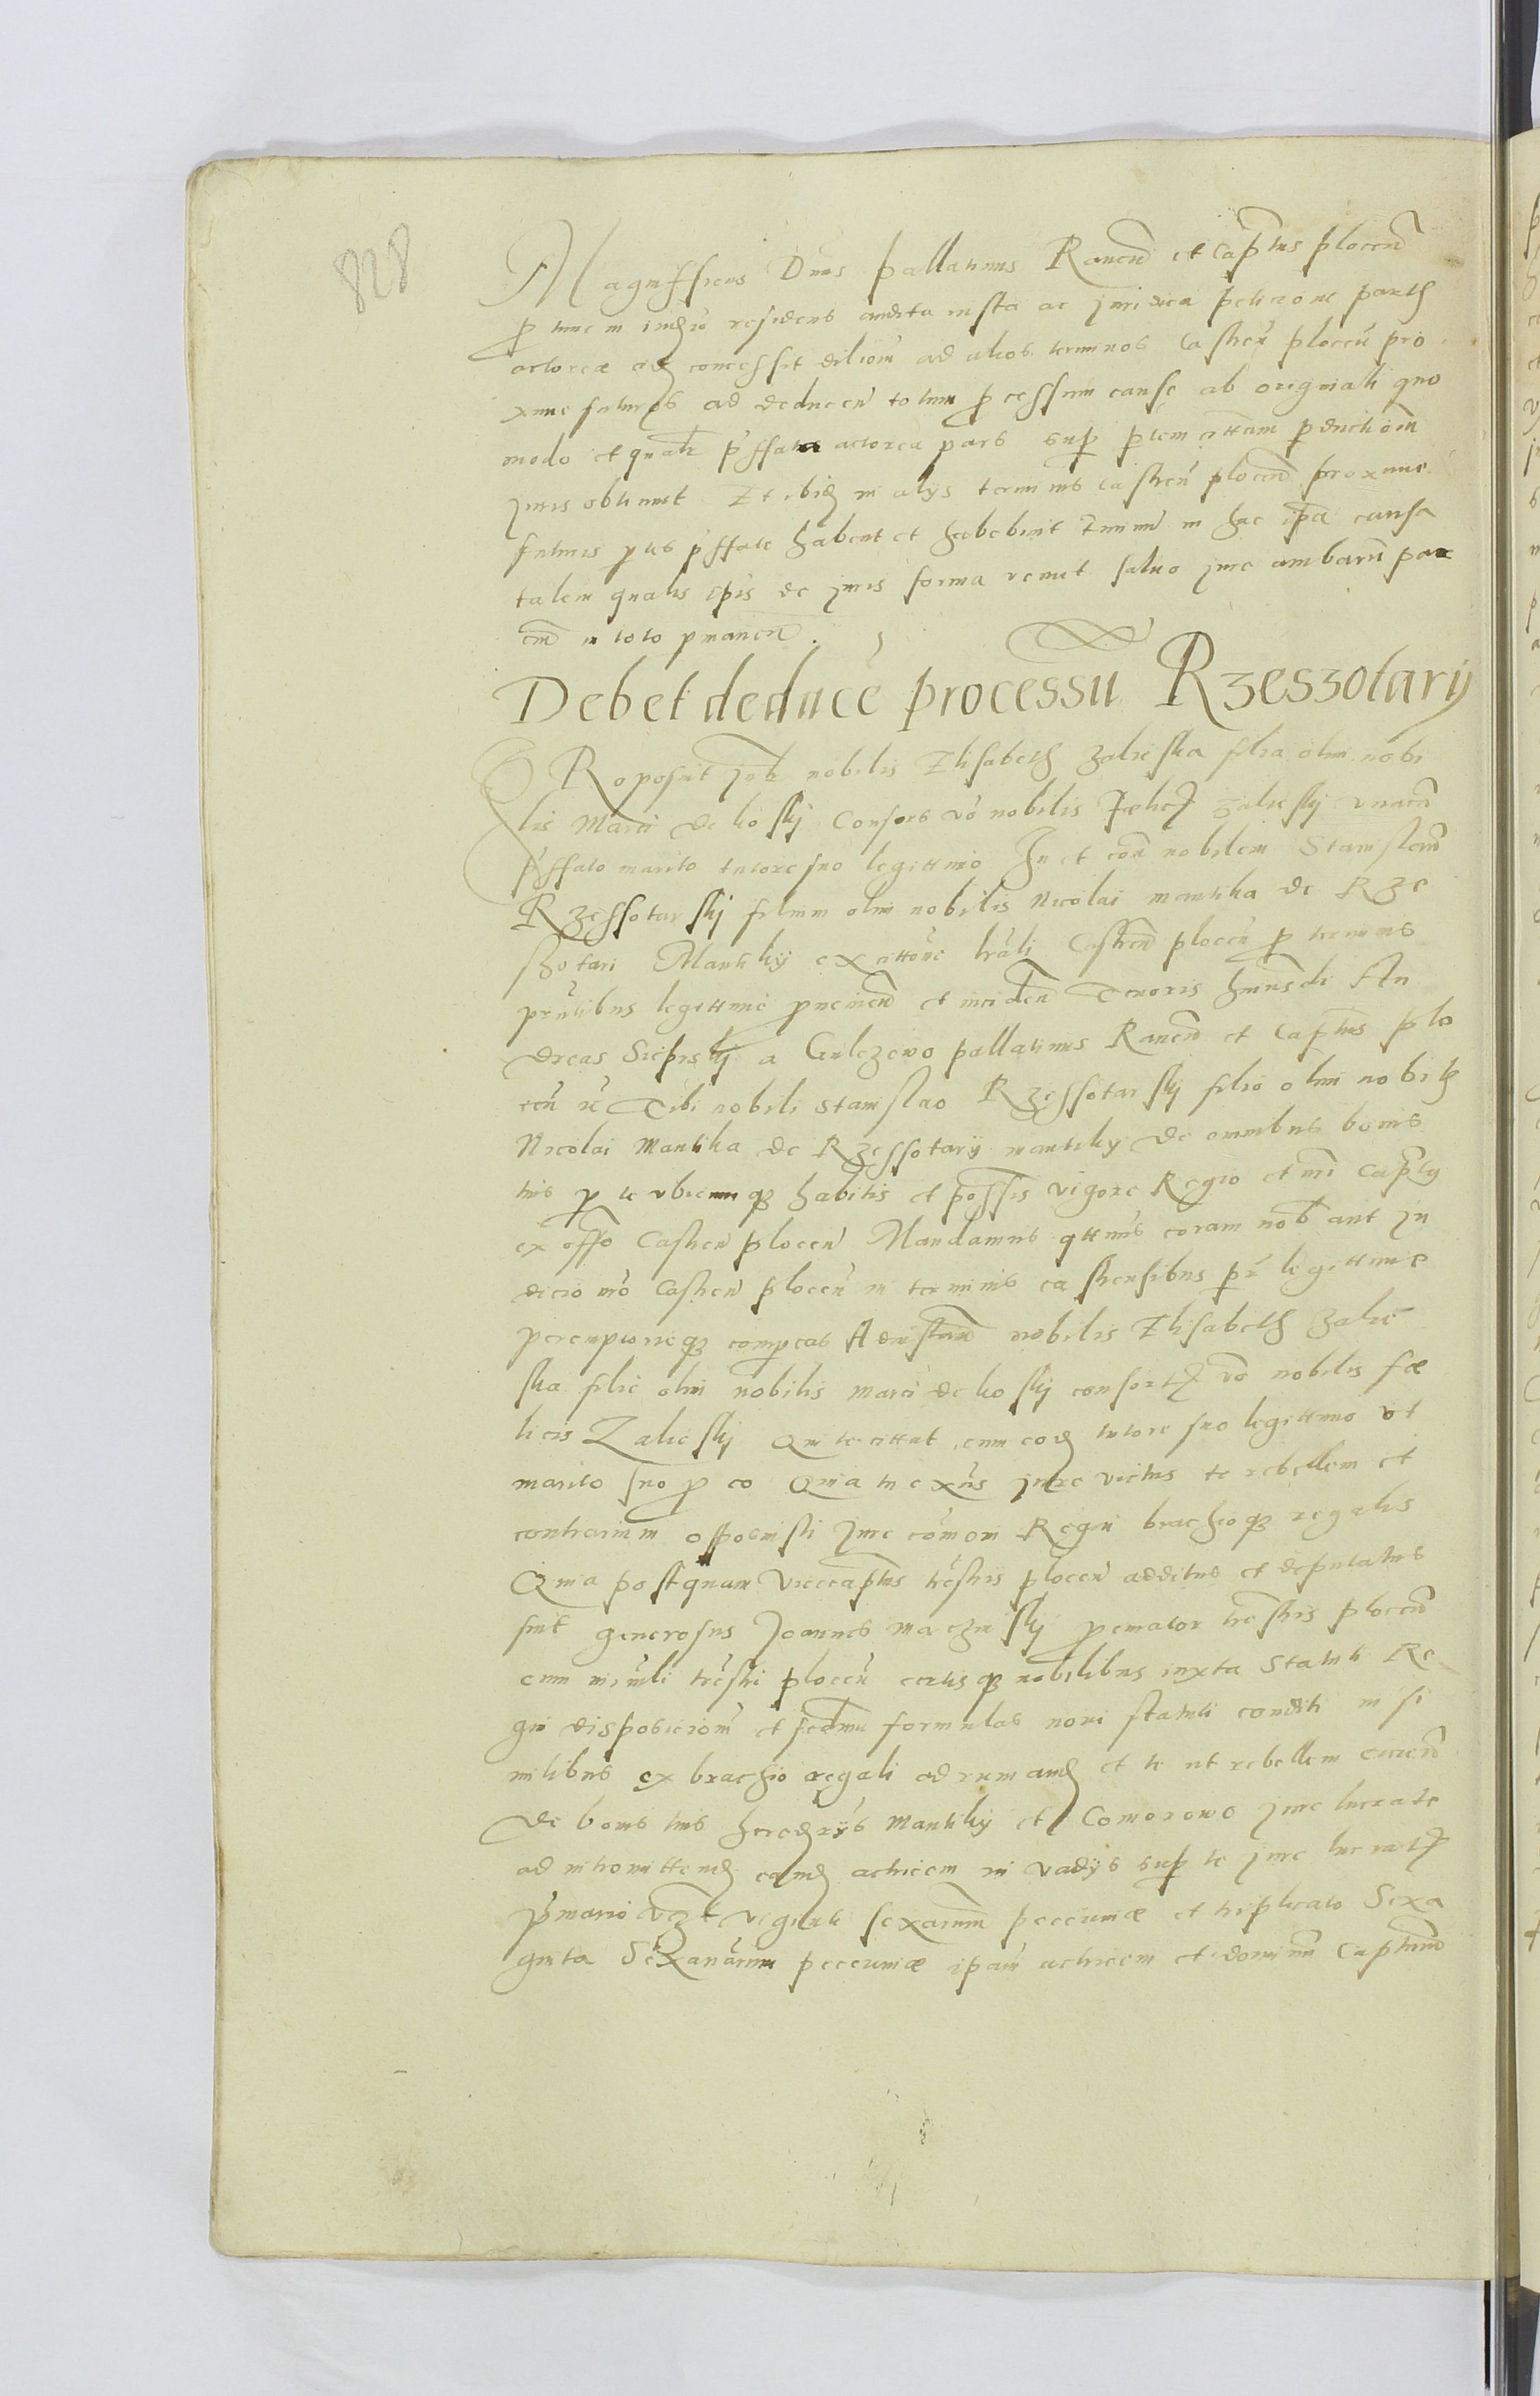 828
Magnifficus Dnus pallatinus Rauen et Captus plocen
p tunc in iudio residens audita iusta ac juridica peticione partis
actoreæ adh concessit dilionm ad alios terminos Castren plocen pro
xime futuros ad deducen totum pcessum cause ab originali quo
modo et qualr pffata actorea pars sup ptem cittatam pductionem
juris obtinuit Et ibid in alys terminis castren plocen proxime
futuris ptes pffate habent et habebunt Tminum in hac ipa causa
talem qualis ipis de juris forma venit saluo jure ambarum par
cium in toto pmanen.
Debet deduce processu Rzeszotarij
PRoposuit jnb nobilis Elisabeth Zalieska filia olim nobi
lis Marci de ko skij Consors vo nobilis Felicis Zalieskij vnacum
pffato marito tutore suo legittimo In et con nobilem Stanislaum
Rzessotarskij filium olim nobilis Nicolai mantika de Rze
szotari Mantikij ex cittone lrali Castren plocen p terminis
pntibus legittime pueniend et inciden Tenoris huiusdi An
dreas Siepiskij a Gulczewo pallatinus Rauen et Captus plo
cen rc Tibi nobili Stanislao Rzessotarskij filio olim nobilis
Nicolai Mantika de Rzessotarij mantikij de omnibus bonis
tuis p te vbicunqz habitis et possis vigore Regio et nri Captus
ex offo Castren plocen Mandamus qttnus coram nob aut ju
dicio nro Castren plocen in terminis castrensibus pr legittime
peremptorieqz compeas Ad instan nobilis Elisabeth Zalie
ska filie olim nobilis Marci de ko skij consortis vo nobilis fœ
licis Zalieskij Qui te cittat cum eod tutore suo legittimo vt
marito suo p eo Quia tu exns jure victus te rebellem et
contrarium opposuisti jure comoni Regni brachioqz regalis
Quia postquam vicecaptus trestris plocen additus et deputatus
fuit generosus Joannes maczinskij pcurator trestris plocen
cum minrli trestri plocen certisqz nobilibus iuxta Statuti Re
gni disposicionem et scdum formulas noui statuti conditi in si
milibus ex brachio regali ad rumand et te ut rebellem eiicien
De bonis tuis heredrys Mantikij et Comorowo jure lucrate
ad intromittend eand actricem in vadys sup te jure lucratis
pmario vzt viginti sexarum pecuniæ et triplicato Sexa
ginta Sexanarum pecuniæ ipam actricem et dominum Captum